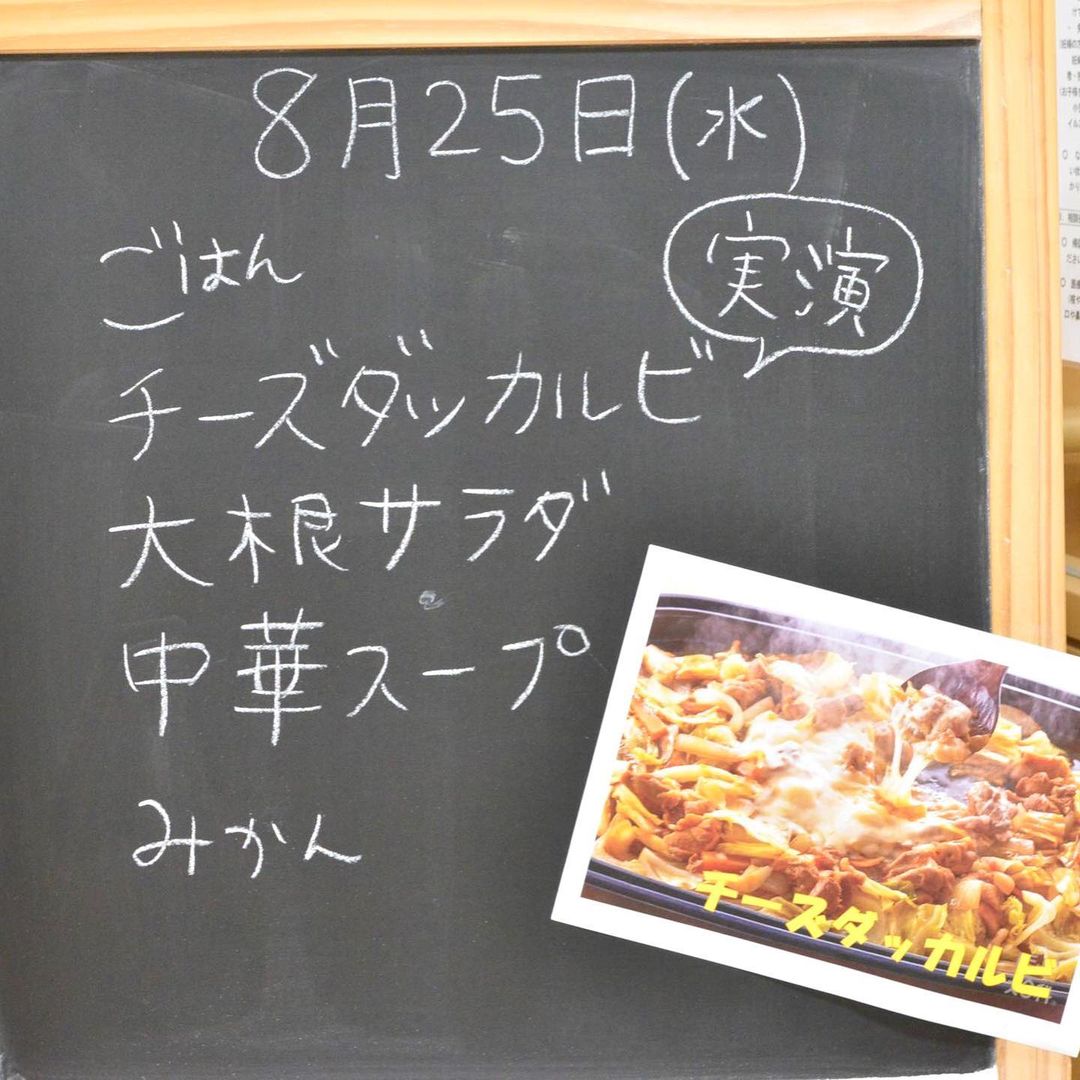 8月25日(水)
実演
ごはん
チーズダッカルビ
大根サラダ
中華スープ
みかん
チーズダッカルビ